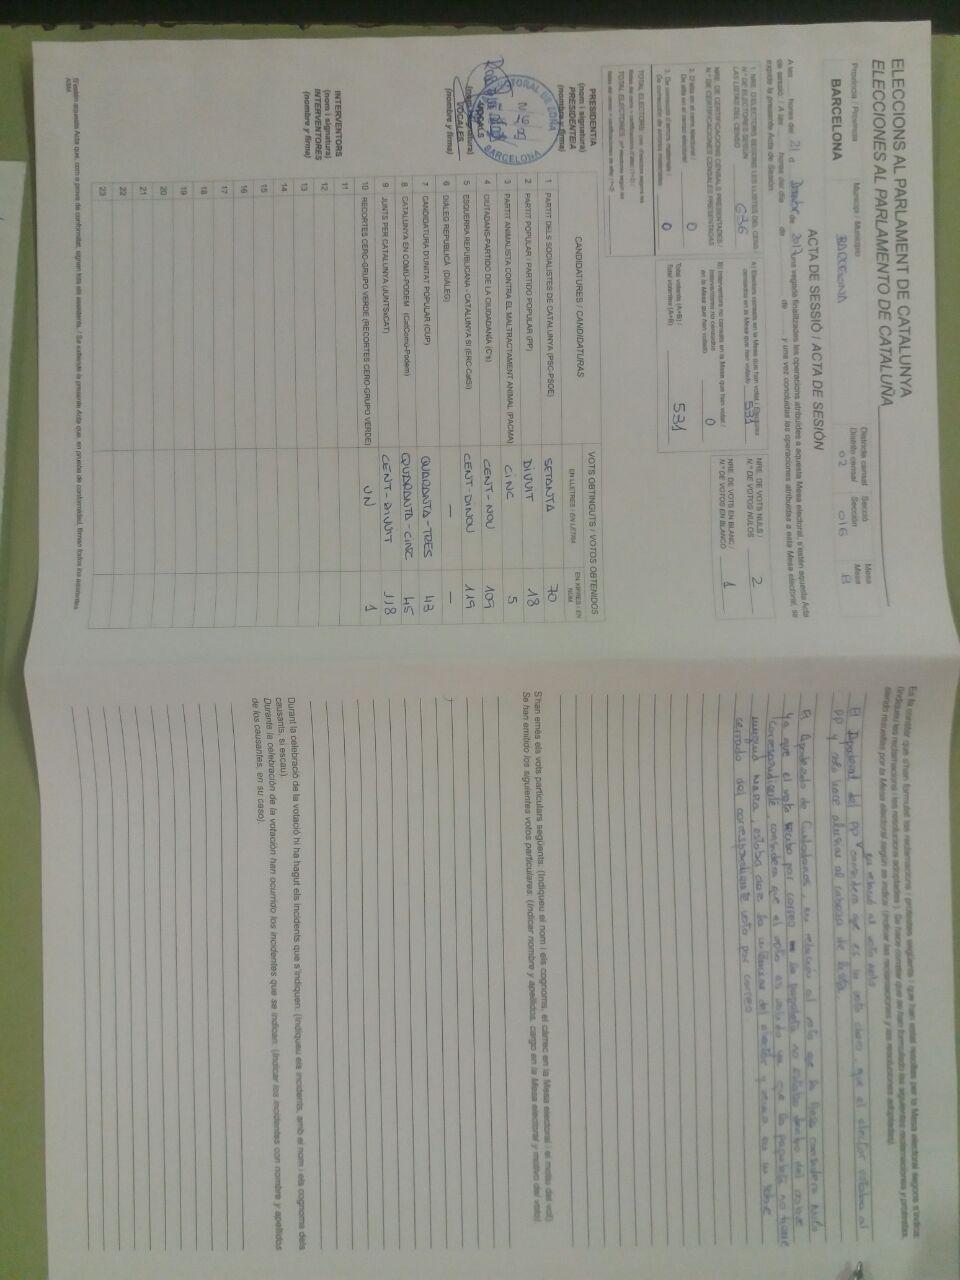 ELECCIONS AL PARLAMENT DE CATALUNYA
ELECCIONES AL PARLAMENTO DE CATALUÑA
Província / Provincia
BARCELONA
Municipi / Municipio
BARCELONA
Districte censal
Distrito censal
02
Secció
Sección
016
Mesa
Mesa
B
ACTA DE SESSIÓ / ACTA DE SESIÓN
A les hores del 21 d Desembre de 2017 una vegada finalitzades les operacions atribuïdes a aquesta Mesa electoral, s'estén aquesta Acta
de sessió / A las horas del día de de y una vez concluidas las operaciones atribuidas a esta Mesa electoral, se
expide la presente Acta de Sesión
1. NRE. D'ELECTORS SEGONS LES LLISTES DEL CENS /
N.º DE ELECTORES SEGÚN
LAS LISTAS DEL CENSO
636
NRE. DE CERTIFICACIONS CENSALS PRESENTADES /
N.º DE CERTIFICACIONES CENSALES PRESENTADAS
2. D'alta en el cens electoral /
De alta en el censo electoral
0
3. De correcció d'errors materials /
De corrección de errores materiales
0
a) Electors censats en la Mesa que han votat / Electores
censados en la Mesa que han votado 531
b) Interventors no censats en la Mesa que han votat /
Interventores no censados
en la Mesa que han votado 0
Total votants (A+B) /
Total votantes (A+B)
531
NRE. DE VOTS NULS /
N.º DE VOTOS NULOS 2
NRE. DE VOTS EN BLANC /
N.º DE VOTOS EN BLANCO 1
CANDIDATURES / CANDIDATURAS
VOTS OBTINGUTS / VOTOS OBTENIDOS
EN LLETRES / EN LETRA
EN XIFRES / EN NÚM.
1 PARTIT DELS SOCIALISTES DE CATALUNYA (PSC-PSOE) SETANTA 70
2 PARTIT POPULAR / PARTIDO POPULAR (PP) DIVUIT 18
3 PARTIT ANIMALISTA CONTRA EL MALTRACTAMENT ANIMAL (PACMA) CINC 5
4 CIUTADANS-PARTIDO DE LA CIUDADANÍA (C's) CENT-NOU 109
5 ESQUERRA REPUBLICANA - CATALUNYA SÍ (ERC-CatSí) CENT-DINOU 119
6 DIÀLEG REPUBLICÀ (DIÀLEG) — —
7 CANDIDATURA D'UNITAT POPULAR (CUP) QUARANTA-TRES 43
8 CATALUNYA EN COMÚ-PODEM (CatComú-Podem) QUARANTA-CINC 45
9 JUNTS PER CATALUNYA (JUNTSxCAT) CENT-DIVUIT 118
10 RECORTES CERO-GRUPO VERDE (RECORTES CERO-GRUPO VERDE) UN 1
11
12
13
14
15
16
17
18
19
20
21
22
23
PRESIDENT/A
(nom i signatura)
PRESIDENTE/A
(nombre y firma)
ELECTORAL DE ZONA
BARCELONA
VOCALS
(nom i signatura)
VOCALES
(nombre y firma)
INTERVENTORS
(nom i signatura)
INTERVENTORES
(nombre y firma)
S'estén aquesta Acta que, com a prova de conformitat, signen tots els assistents. / Se extiende la presente Acta que, en prueba de conformidad, firman todos los asistentes
Es fa constar que s'han formulat les reclamacions i protestes següents i que han estat resoltes per la Mesa electoral segons s'indica:
(Indiqueu les reclamacions i les resolucions adoptades) / Se hace constar que se han formulado las siguientes reclamaciones y protestas,
siendo resueltas por la Mesa electoral según se indica: (Indicar las reclamaciones y las resoluciones adoptadas)
en relació al voto nulo
El Apoderat del PP considera que es un voto claro, que el elector votaba al
PP y solo hace alusión al cabeza de lista.
El Apoderado de Ciudadanos, en relacion al voto que la Mesa considera nulo
ya que el voto por correo la papeleta no estaba dentro del sobre
correspondiente, considera que el voto es valido ya que la papeleta no tiene
ninguna marca, estaba del elector y venia en su sobre
cerrado del correspondiente voto por correo
S'han emès els vots particulars següents: (Indiqueu el nom i els cognoms, el càrrec en la Mesa electoral i el motiu del vot)
Se han emitido los siguientes votos particulares: (Indicar nombre y apellidos, cargo en la Mesa electoral y motivo del voto)
Durant la celebració de la votació hi ha hagut els incidents que s'indiquen: (Indiqueu els incidents, amb el nom i els cognoms dels
causants, si escau).
Durante la celebración de la votación han ocurrido los incidentes que se indican: (Indicar los incidentes con nombre y apellidos
de los causantes, en su caso).